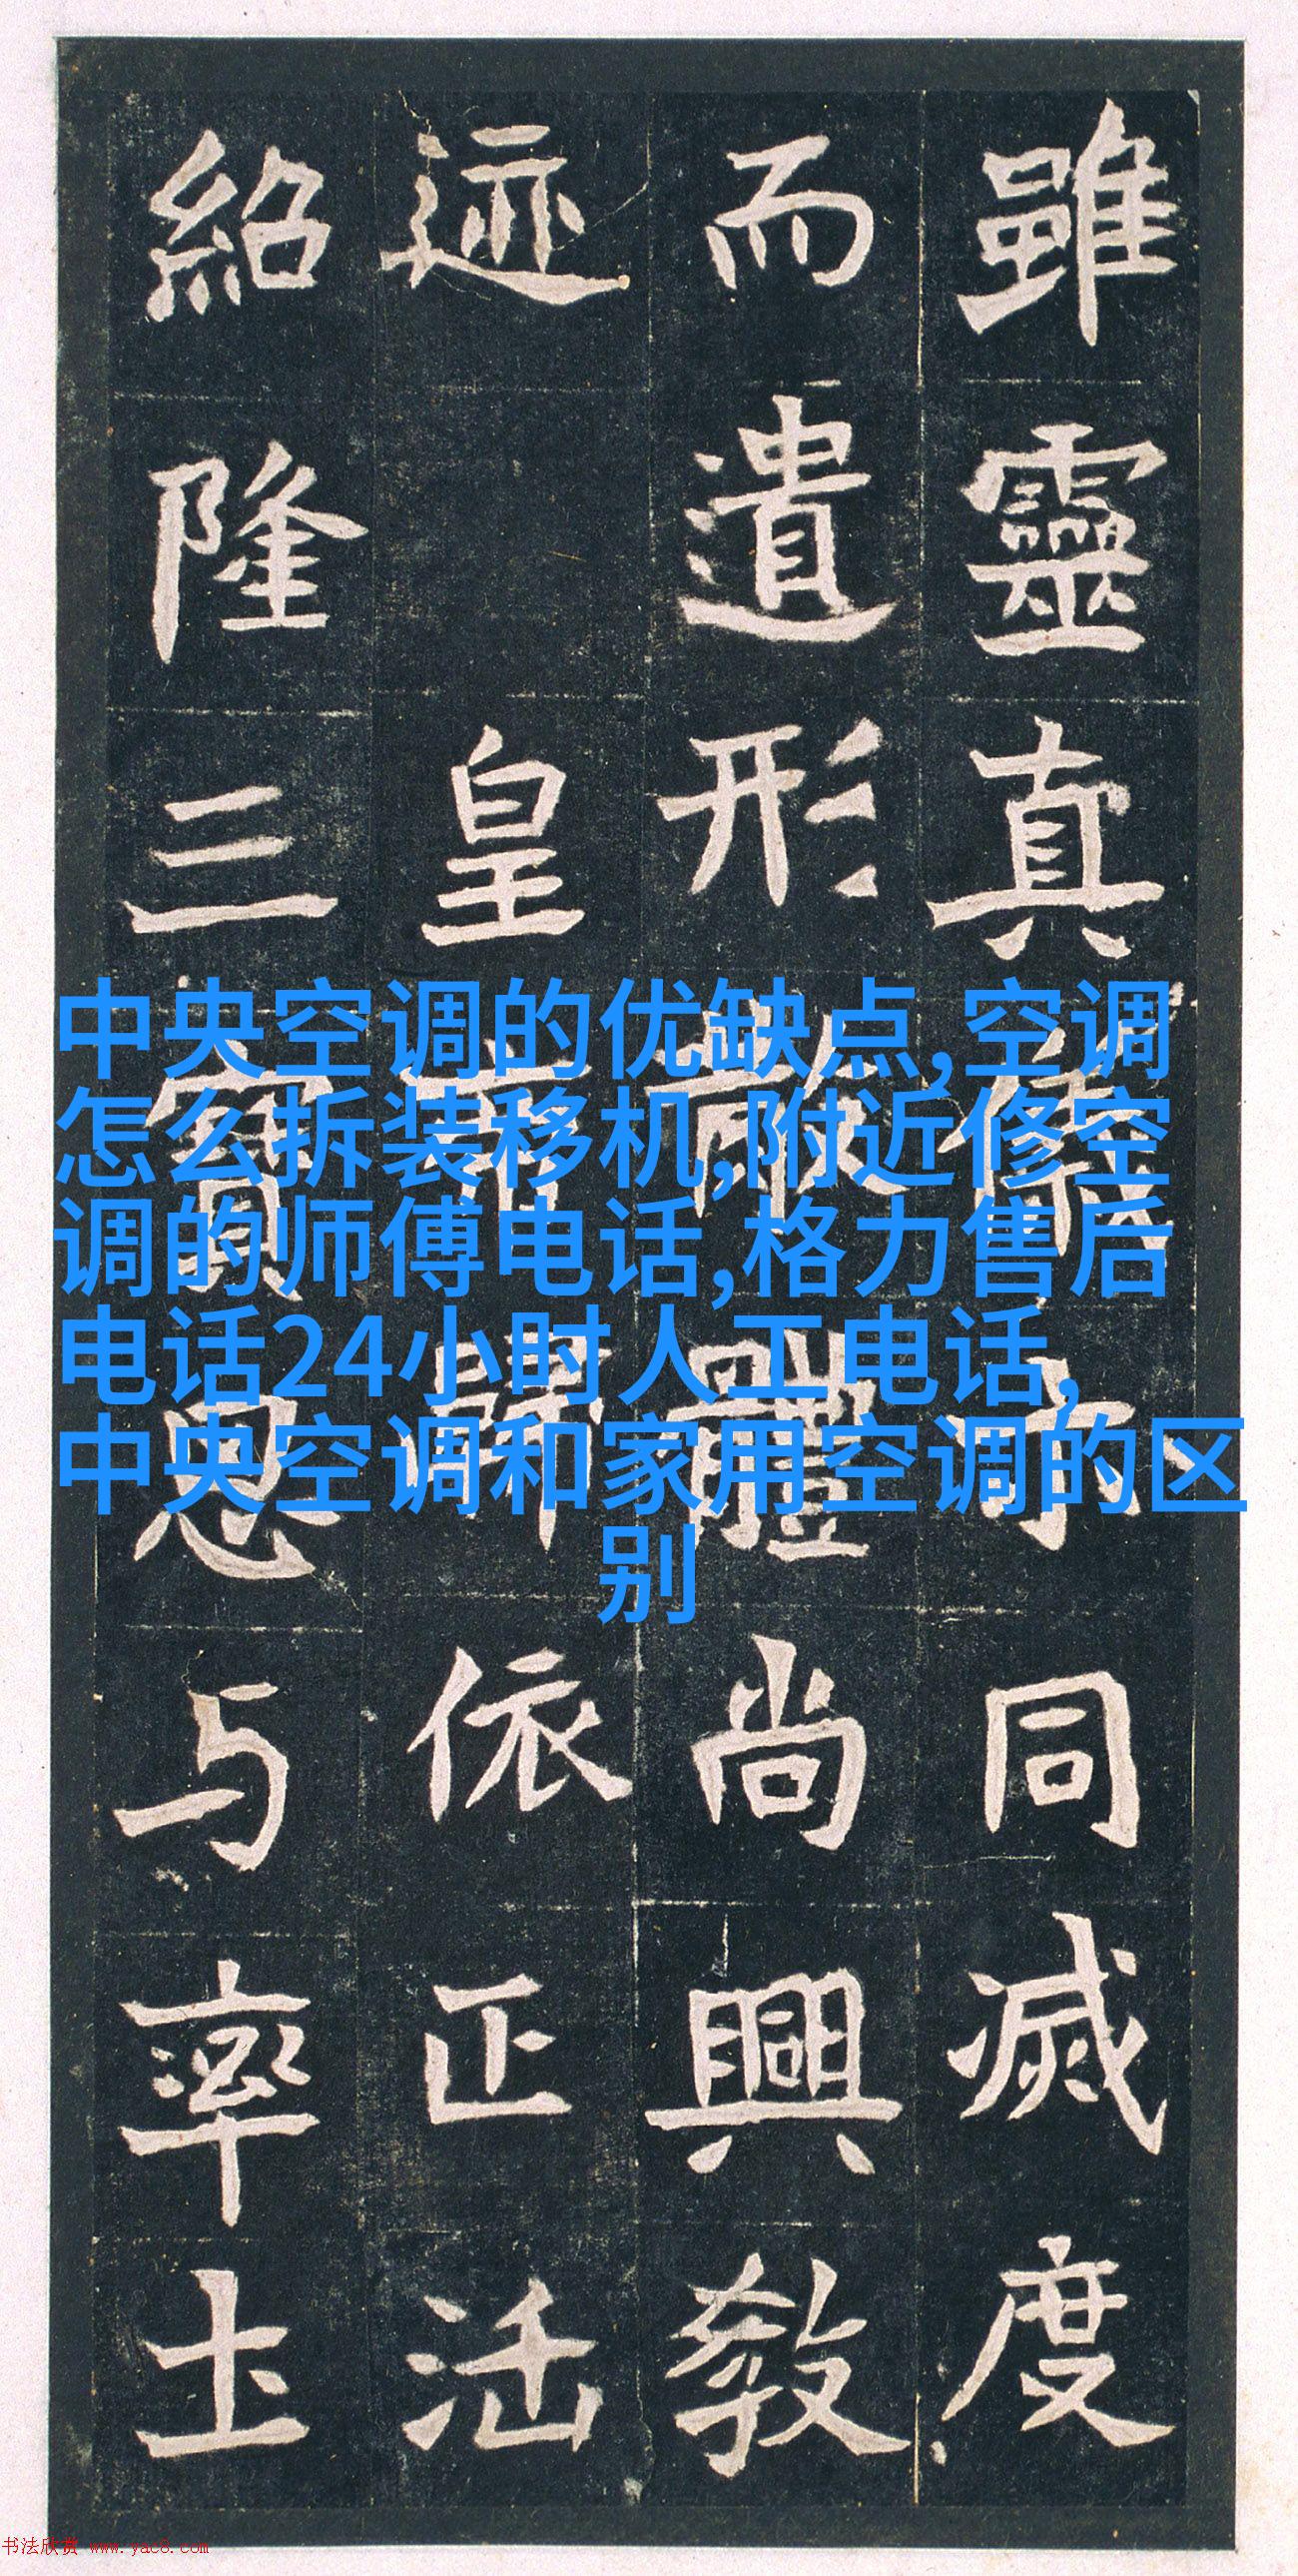 雖靈真同滅度
而遺形體尚興教
迹 皇歸依正法
紹隆三寶思与率圡
中央空调的优缺点,空调
怎么拆装移机,附近修空
调的师傅电话,格力售后
电话24小时人工电话,
中央空调和家用空调的区
别
书法欣赏 www.yac8.com